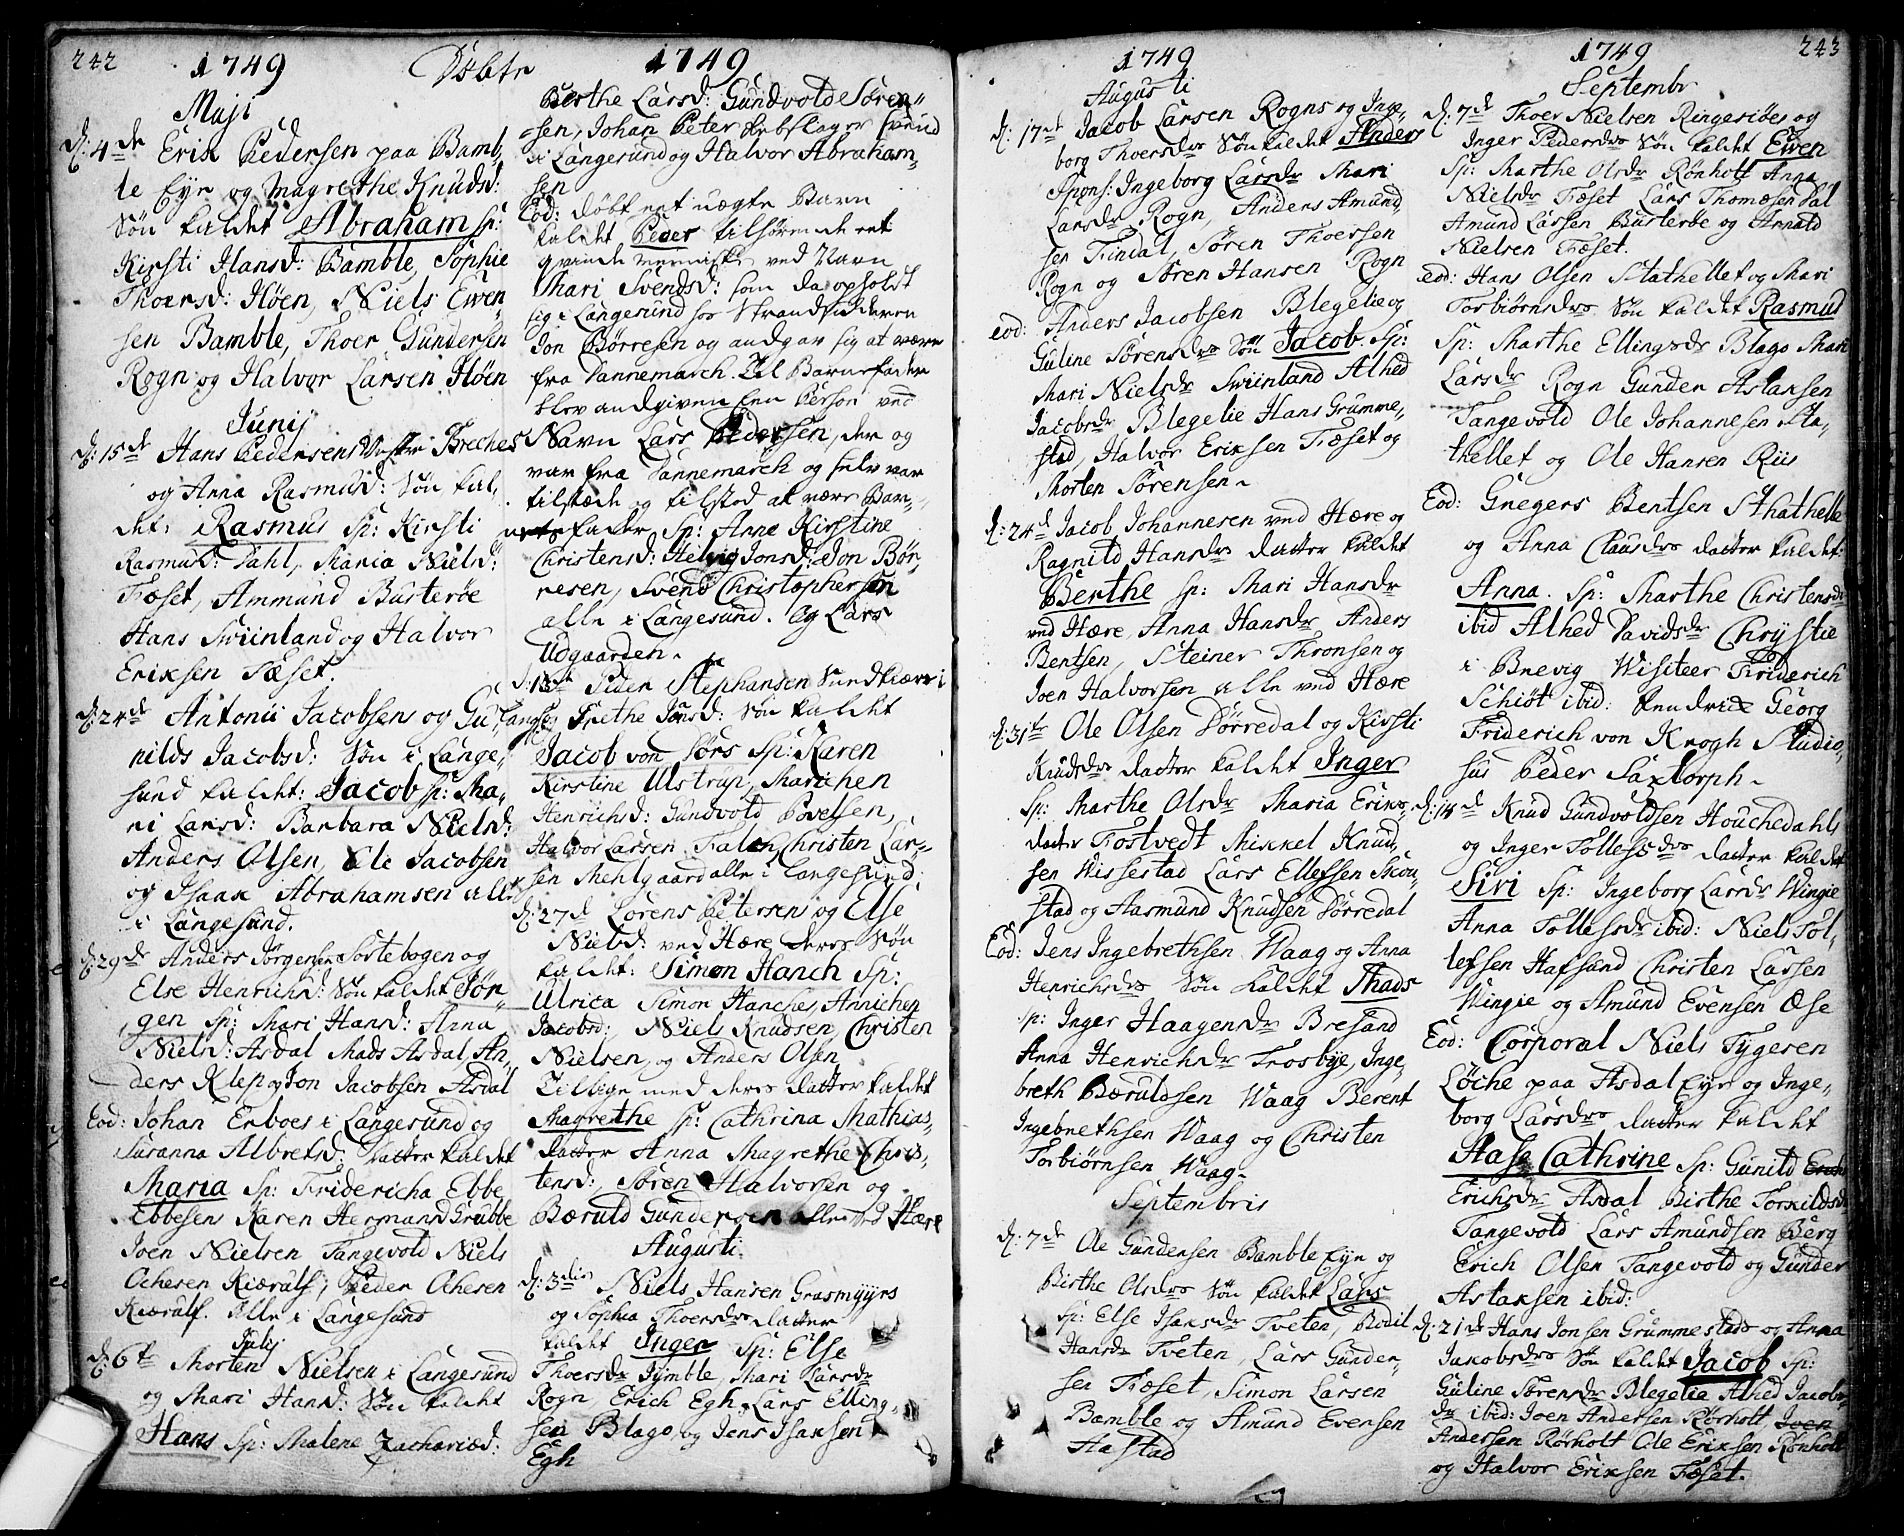 242
1749
Døbte
Maji
d: 4de Erik Pedersen paa Bamb,
le Eyr og Magrethe Knudsd:
Søn kaldet Abraham sp:
Kirsti Hansd: Bamble, Sophie
Thoersd: Høen, Niels Even
sen Bamble, Thoer Gundersen
Rogn og Halvor Larsen Høen
Junij
d: 15de Hans Pedersens Vestre Breches
og Anna Rasmusd: Søn kal,
det: Rasmus Sp: Kirsti
Rasmusd: Dahl, Maria Nielsd:
Fæset, Ammund Busterøe
Hans Swiinland og Halvor
Eriksen Fæset.
d: 24de Antonii Jacobsens og Gu
nilds Jacobsd: Søn i Lange,
sund kaldet: Jacob sp: Ma,
ri Larsd: Barbara Nielsd:
Anders Olsen, Ole Jacobsen
og Isaak Abrahamsen alle
i Langesund.
d: 29de Anders Jørgensen Sostebogen og
Else Henrichsd: Søn kaldet Jør,
gen Sp: Mari Hansd: Anna
Nielsd: Asdal Mads Asdal, An,
ders Klep og Jon Jacobsen Asdal
Eod: Johan Erboes i Langesund og
Susanna Albretsd: Datter kaldet
Maria Sp: Fridericha Ebbe
Ebbesens Karen Hermand Grubbe
Joen Nielsen Tangevold Niels
Achesen Kiærulf, Peder Achesen
Kiærulf. Alle i Langesund
Julij
d: 6te Morten Nielsen i Langesund
og Mari Hansd: Søn kaldet
Hans Sp: Malene Zachariæd:
1749
Berthe Larsd: Gundvold Søren,,
sen, Johan Peter Rebslager svend
i Langesund og Halvor Abraham,
sen
Eod: døbt et uægte Barn
kaldet Peder tilhørende et
qvinde menniske ved Navn
Mari Svendsd: som da opholdt
sig i Langesund hos Strandsidderen
Jon Børresen og andgav sig at være
fra Dannemarch. Til Barnefader
blev andgiven een Person ved
Navn Lars Pedersen, der og
var fra Dannemarch og selv var
tilstæde og tilstod at være Bar,
nets fader Sp: Anne Kirstine
Christensd: Helvig Jonsd: Jon Bør,
resen, Svend Christophersen
alle i Langesund. Og Lars
Udgaarden.
d: 13de Peder Stephansen Sundkiær i
Langesd og Grethe Jonsd: Søn kaldet
Jacob von Børs Sp: Karen
Kirstine Ulstrup, Marichen
Henrichsd: Gundvold Povelsen,
Halvor Larsen, Falck Christen Lar,
sen Mehlgaard alle i Langesund:
d: 27d Lorens Petersens og Else
Nielsd: ved Hære deres Søn
kaldet: Simon Hanch Sp:
Ulrica Simon Hanches, Annichen
Jacobsd:, Niels Knudsen, Christen
Nielsen, og Anders Olsen
Tillige med deres Datter kaldet
Magrethe Sp: Cathrina Mathias,
datter Anna Magrethe Chris,
tensd:, Søren Halvorsen og
Bæruld Gundersen alle ved Hære
Augusti.
d: 3die Niels Hansen Grasmyyrs
og Sophia Thoersdr datter
kaldet Inger Sp: Else
Thoersdr Jymble, Mari Larsdr
Rogn, Erich Egh, Lars Elling,
sen Blago, og Jens Isaksen
Egh
1749
Augusti
d: 17de Jacob Larsen Rogns og Inge,
borg Thoersdrs Søn kaldet Anders
Spons: Ingeborg Larsdr Mari
Larsdr Rogn, Anders Amund,
sen Findal, Søren Thoersen
Rogn og Søren Hansen Rogn
eod: Anders Jacobsen Blegelie og
Guline Sørensdrs Søn Jacob Sp:
Mari Nielsdr Swiinland Alhed
Jacobsdr Blegelie Hans Grumme,
stad, Halvor Eriksen Fæset og
Morten Sørensen.
d: 24d Jacob Johannesen ved Hære og
Ragnild Hansdrs datter kaldet
Berthe sp: Mari Hansdr
ved Hære, Anna Hansdr Anders
Bentsen, Steiner Thronsen og
Joen Halvorsen alle ved Hære
d: 31te Ole Olsen Dørredal og Kirsti
Knudsdrs datter kaldet Inger
Sp: Marthe Olsdr Maria Eriks,
datter Tostvedt Mikkel Knud,
sen Wissestad Lars Ellefsen Skou,
stad og Aasmund Knudsen Dørredal
Eod: Jens Ingebrethsen Waag og Anna
Henrichsdrs Søn kaldet Mads
sp: Inger Haagensdr Bresand
Anna Henrichsdr Trosbye, Inge,
breth Bæruldsen Waag Berent
Ingebrethsen Waag og Christen
Torbiørnsen Waag.
Septembris
d: 7de Ole Gundersen Bamble Eyr og
Birthe Olsdrs Søn kaldet Lars
sp: Else Isaksdr Tveten, Bodil
Hansdr Tveten, Lars Gunder,
sen Fæset, Simon Larsen
Bamble og Amund Evensen
Hastad
243
1749
Septembr
d: 7de Thoer Nielsen Ringesiøes og
Inger Pedersdrs Søn kaldet Ewen
Sp: Marthe Olsdr Rønholt Anna
Nielsdr Fæset Lars Thomæsen Dal
Amund Larsen Busterøe og Arnold
Nielsen Fæset.
eod: Hans Olsen Stathellet og Mari
Torbiørnsdrs Søn kaldet Rasmus
Sp: Marthe Ellingsdr Blago Mari
Larsdr Rogn Gunder Aslaksen
Tangevold Ole Johannesen Sta,
thellet og Ole Hansen Riis
Eod: Gregers Bentsen Stathelle
og Anna Clausdrs datter kaldet
Anna. Sp: Marthe Christensdr
ibid Alhed Davidsdr Chrystie
i Brevig Wisiteer Friderich
Schiøt ibid: Hendrik Georg
Friderich von Krogh Studio,
sus Peder Saxtorph.
d: 14de Knud Gundvoldsen Houchedahls
og Inger Tollefsdrs datter kaldet
Siri Sp: Ingeborg Larsdr Wingie
Anna Tollefsdr ibid: Niels Tol,
lefsen Hafsund Christen Larsen
Wingie og Amund Evensen Øse
Eod: Corporal Niels Tygesen
Løche paa Asdal Eyr og Inge,
borg Larsdrs datter kaldet
Aase Cathrine Sp: Gunild
Erichsdr Asdal Birthe Torkildsdr
Tangevold Lars Amundsen Berg
Erich Olsen Tangevold og Gunder
Aslaksen ibid:
d: 21de Hans Jonsen Grummestads og Anna
Jakobsdrs Søn kaldet Jacob Sp:
Guline Sørensdr Blegelia Alhed Jacobs,
dr ibid: Joen Andersen Rørholt, Joen
Andersen Rørholt Ole Eriksen Rønholt
og Halvor Eriksen Fæset.